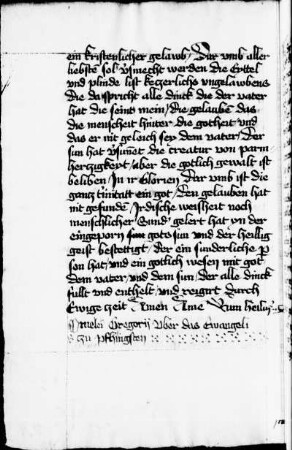 ein kristenlicher gelawb / Dar vmb aller
liebste sol vsmecht werden die Eyttel
vnd plinde list keczerlichs vngelawbens
die da spricht alle dinck die der vater
hat die seint mein / die gelaubt das
die menscheit hinter die gotheit vnd
das er nit geleich sey dem vater / Der
sun hat vsunet die creatur von parm
herczigkeyt / aber die gotlich gewalt ist
beliben / In ir Glorien / Dar vmb ist die
gancz trinitatt ein got / Den gelauben hat
nit gefunden / Irdische weisheit noch
menschlicher Sund / gelert hat yn der
eingeporn gotz sun vnd der heillig
geist bestettigt / der ein sunderliche p
son hat / vnd ein gotlich wesen mit got
dem vater / vnd dem sun / der alle dinck
fullt vnd enthelt / vnd regirt durch
Ewige zeit Amen
Omelia Gregorij Uber das Ewangeli
zu pfhingsten